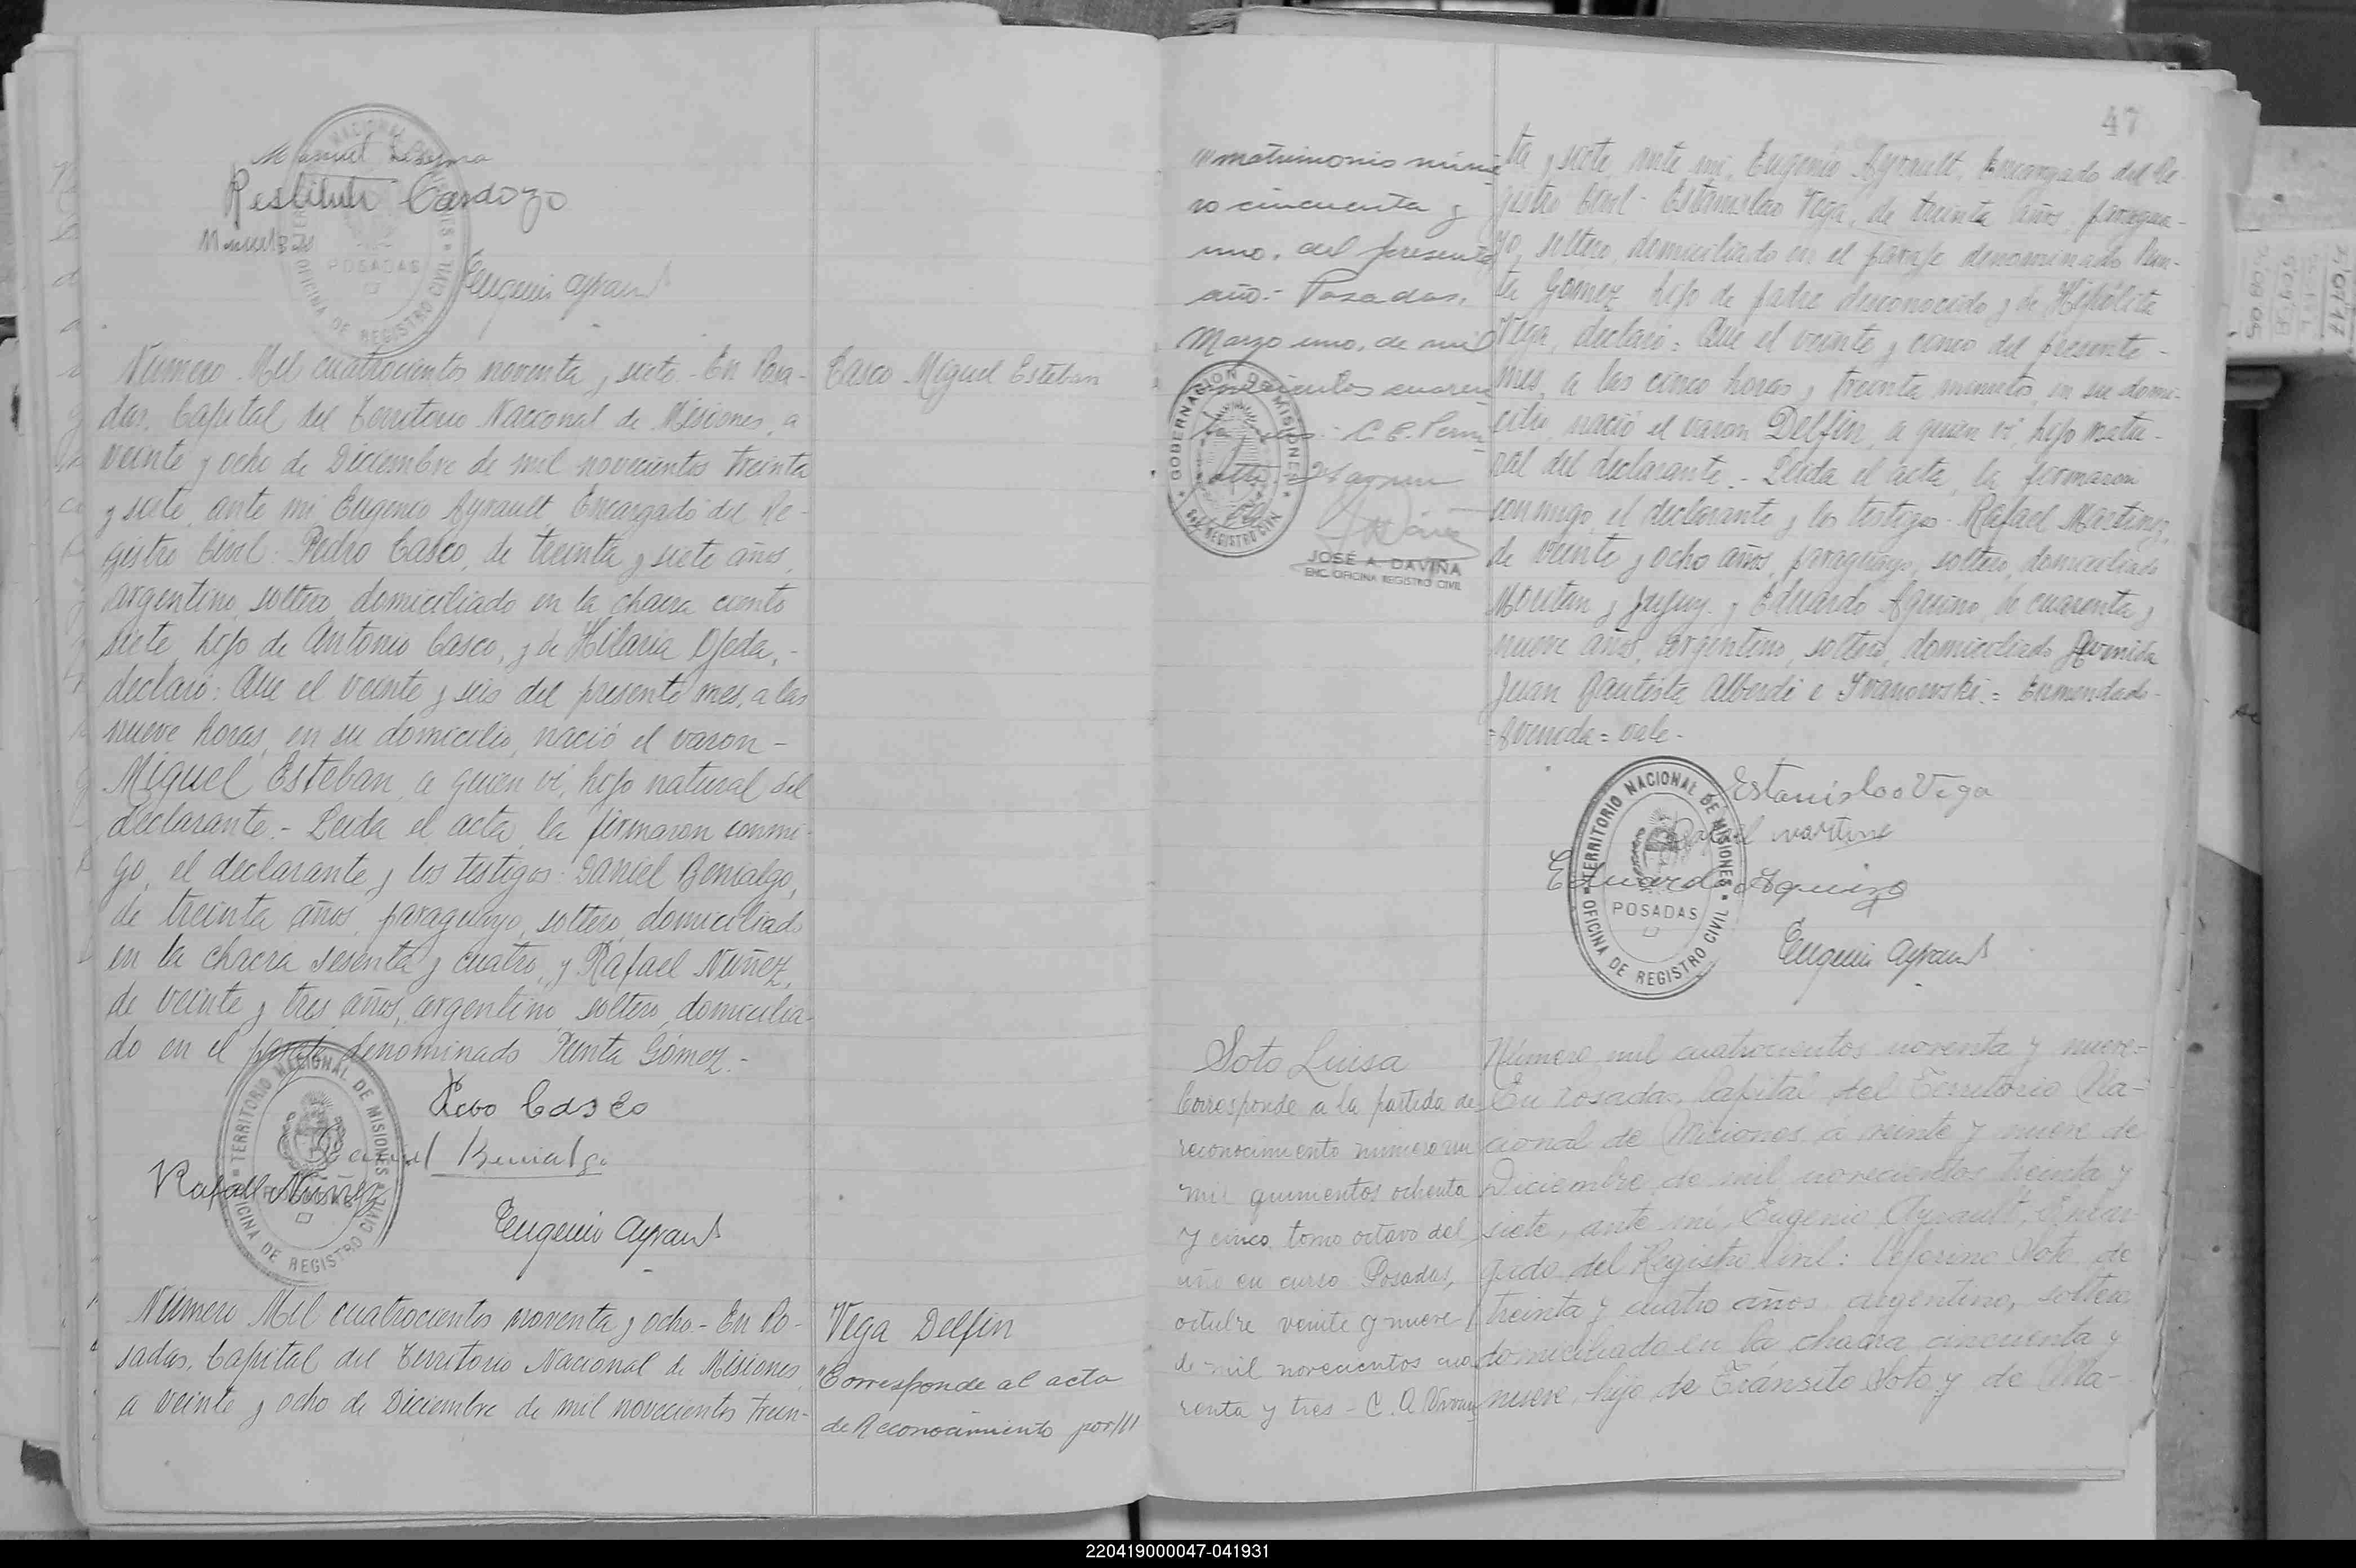 Manuel Ledesma
Restituto Cardozo
POSADAS
OFICINA DE REGISTRO CIVIL
Eugenio Ayrault
Número Mil cuatrocientos noventa y siete.- En Posa-
das, Capital del Territorio Nacional de Misiones, a
veinte y ocho de Diciembre de mil novecientos treinta
y siete, ante mi Eugenio Ayrault, Encargado del Re-
gistro Civil: Pedro Casco, de treinta y siete años,
argentino, soltero, domiciliado en la chacra ciento
siete, hijo de Antonio Casco, y de Hilaria Ojeda,-
declaró: Que el veinte y seis del presente mes, a las
nueve horas, en su domicilio, nació el varon-
Miguel Esteban, a quien ví, hijo natural del
declarante.- Leida el acta, la firmaron conmi-
go, el declarante y los testigos: Daniel Benialgo,
de treinta años, paraguayo, soltero, domiciliado
en la chacra sesenta y cuatro, y Rafael Nuñez,
de veinte y tres años, argentino, soltero, domicilia-
do en el paraje denominado Punta Gómez.-
Casco Miguel Esteban
TERRITORIO NACIONAL DE MISIONES
OFICINA DE REGISTRO CIVIL
Casco
Daniel Benialgo
Rafael Nuñez
Eugenio Ayrault
Número Mil cuatrocientos noventa y ocho.- En Po-
sadas, Capital del Territorio Nacional de Misiones,
a veinte y ocho de Diciembre de mil novecientos trein-
Vega Delfin
"Corresponde al acta
de Reconocimiento por///
47
///matrimonio núme
ro cincuenta y
uno, del presente
año.- Posadas,
Marzo uno, de mil
novecientos cuaren
GOBERNACION DE MISIONES
REGISTRO CIVIL
JOSÉ A. DAVIÑA
ENC. OFICINA REGISTRO CIVIL
ta y siete, ante mi, Eugenio Ayrault, Encargado del Re-
gistro Civil- Estanislao Vega, de treinta años, paragua-
yo, soltero, domiciliado en el paraje denominado Pun-
ta Gomez, hijo de padre desconocido y de Hipólita
Vega, declaró: Que el veinte y cinco del presente-
mes, a las cinco horas y treinta minutos, en su domi-
cilio, nació el varon Delfin, a quien ví, hijo natu-
ral del declarante.- Leida el acta, la firmaron
conmigo, el declarante y los testigos: Rafael Martinez,
de veinte y ocho años, paraguayo, soltero, domiciliado
y Jujuy, y Eduardo Aquino, de cuarenta y
nueve años, argentino, soltero, domiciliado Avenida
Juan Bautista Alberdi e Ivanowski.= Enmendado-
=Avenida= vale-
TERRITORIO NACIONAL DE MISIONES
POSADAS
OFICINA DE REGISTRO CIVIL
Estanislao Vega
Rafael Martine
Eduardo Aquino
Eugenio Ayrault
Soto Luisa
Corresponde a la partida de
reconocimiento número un
mil quinientos ochenta
y cinco tomo octavo del
año en curso Posadas,
octubre veinte y nueve
de mil novecientos cua
renta y tres -
Número mil cuatrocientos noventa y nueve-
En Posadas, Capital del Territorio Na-
cional de Misiones, a veinte y nueve de
Diciembre de mil novecientos treinta y
siete, ante mí, Eugenio Ayrault, Encar-
gado del Registro Civil: Ceferino Soto, de
treinta y cuatro años, argentino, soltero,
domiciliado en la chacra cincuenta y
nueve, hijo de Tránsito Soto y de Ma-
220419000047-041931